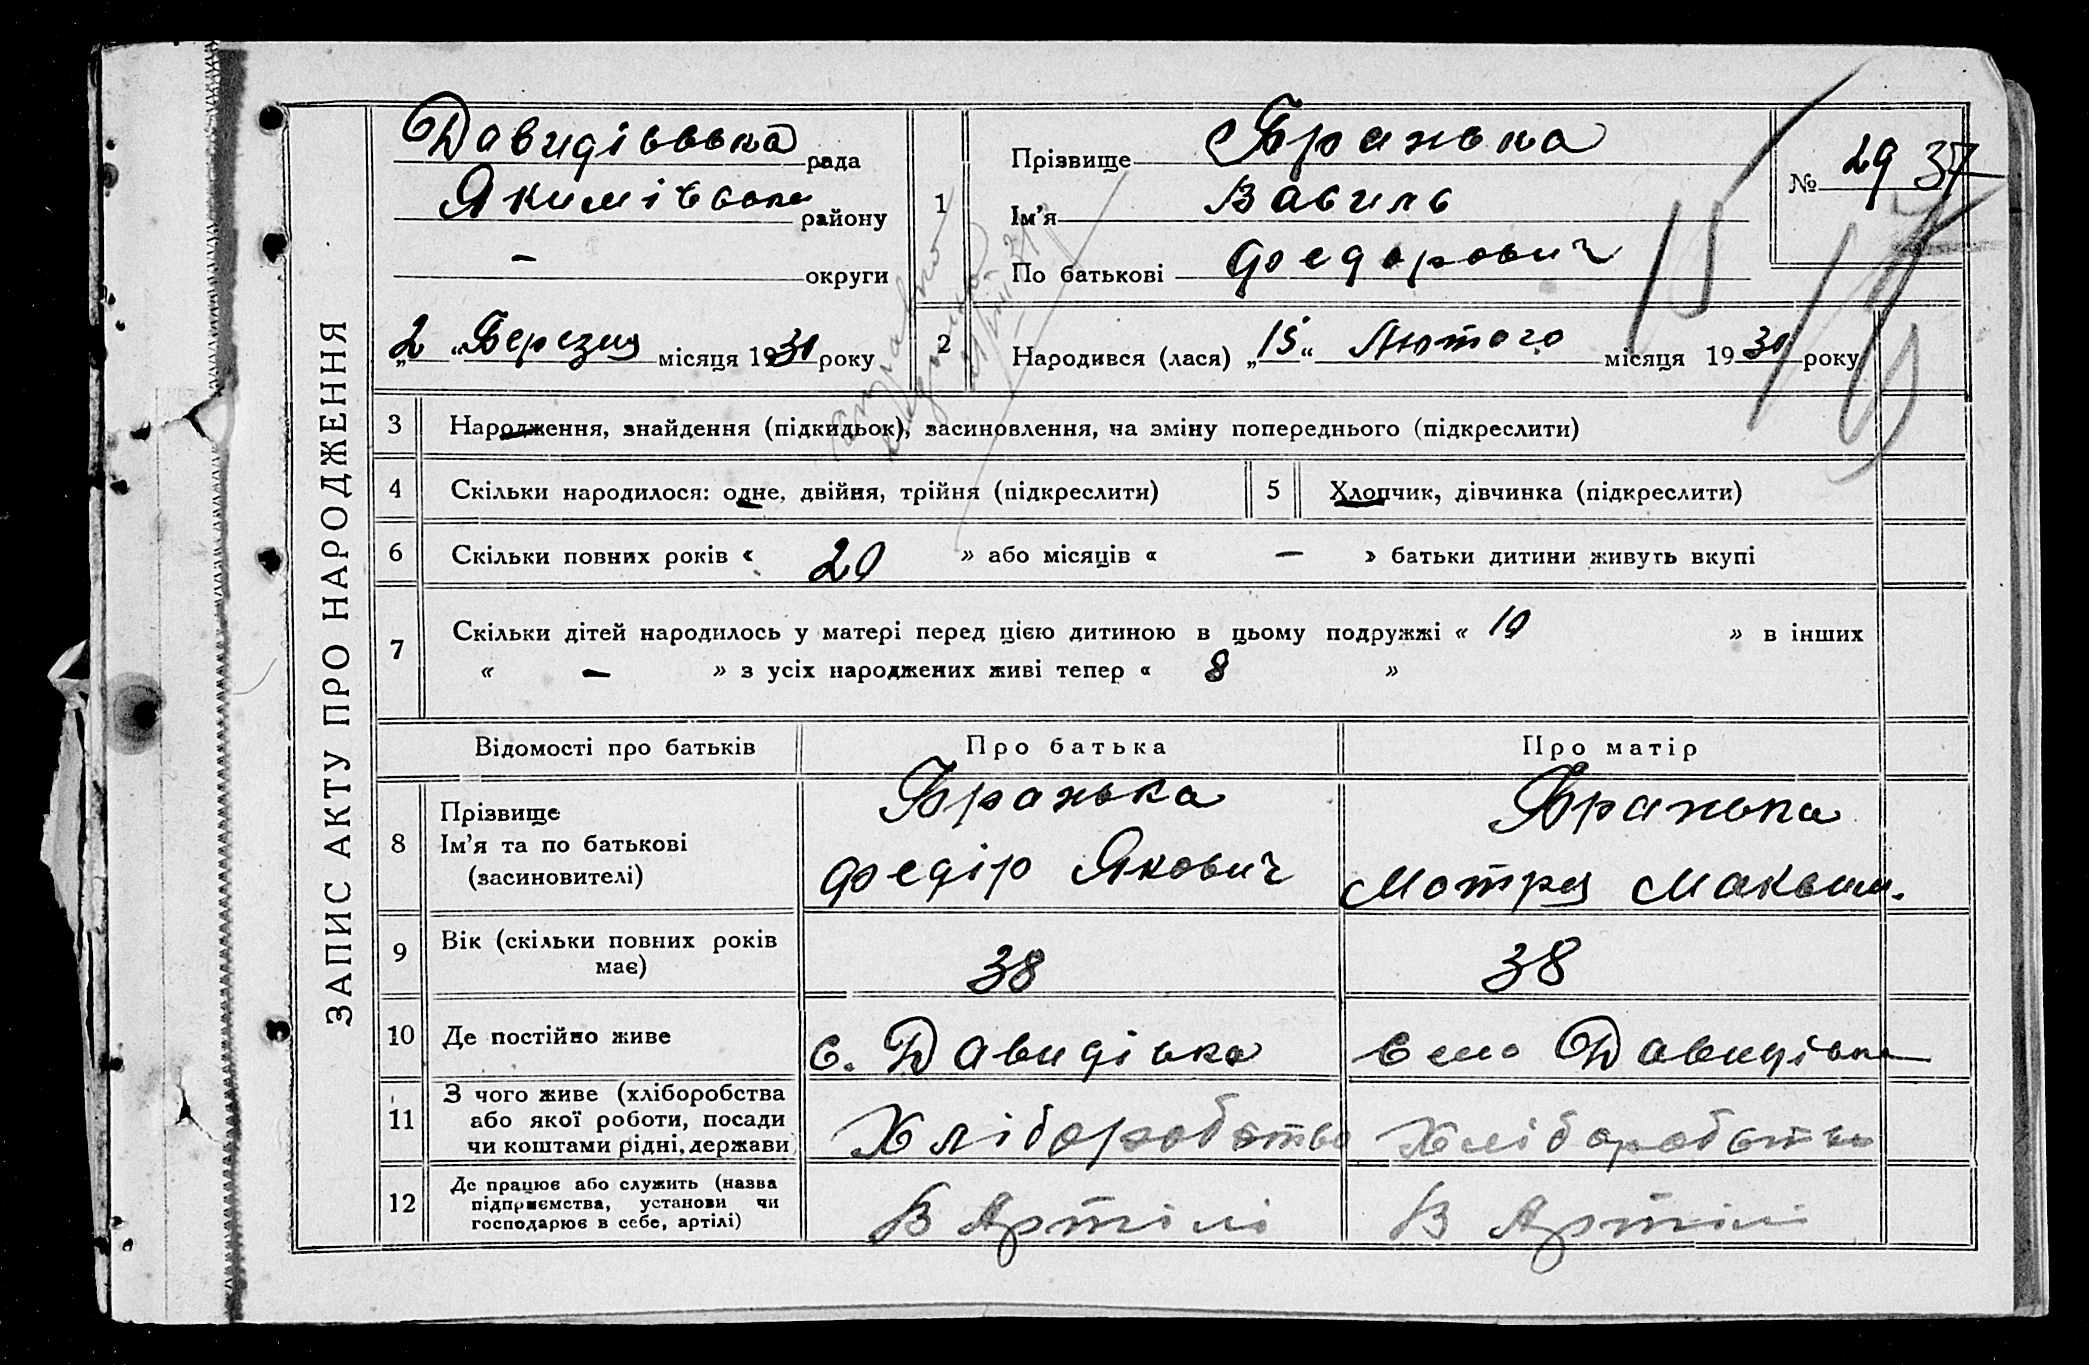 ЗАПИС АКТУ ПРО НАРОДЖЕННЯ
Давидівська рада
Якимівськ району
– округи
„2“ Березня місяця 1930 року
1
Прізвище Бранька
Ім'я Василь
По батькові Федорович
№ 29 37
15
2
Народився (лася) „15“ Лютого місяця 1930 року
3 Народження, знайдення (підкидьок), засиновлення, на зміну попереднього (підкреслити)
4 Скільки народилося: одне, двійня, трійня (підкреслити) 5 Хлопчик, дівчинка (підкреслити)
6 Скільки повних років « 20 » або місяців « – » батьки дитини живуть вкупі
7 Скільки дітей народилось у матері перед цією дитиною в цьому подружжі « 10 » в інших
« – » з усіх народжених живі тепер « 8 »
Відомості про батьків Про батька Про матір
8 Прізвище
Ім'я та по батькові
(засиновителі)
Бранька
Федір Якович
Бранька
Мотря Максим.
9 Вік (скільки повних років
має)
38 38
10 Де постійно живе с. Давидівка Село Давидівка
11 З чого живе (хліборобства
або якої роботи, посади
чи коштами рідні, держави
Хліборобство Хліборобство
12 Де працює або служить (назва
підприємства, установи чи
господарює в себе, артілі)
В Артілі В Артілі